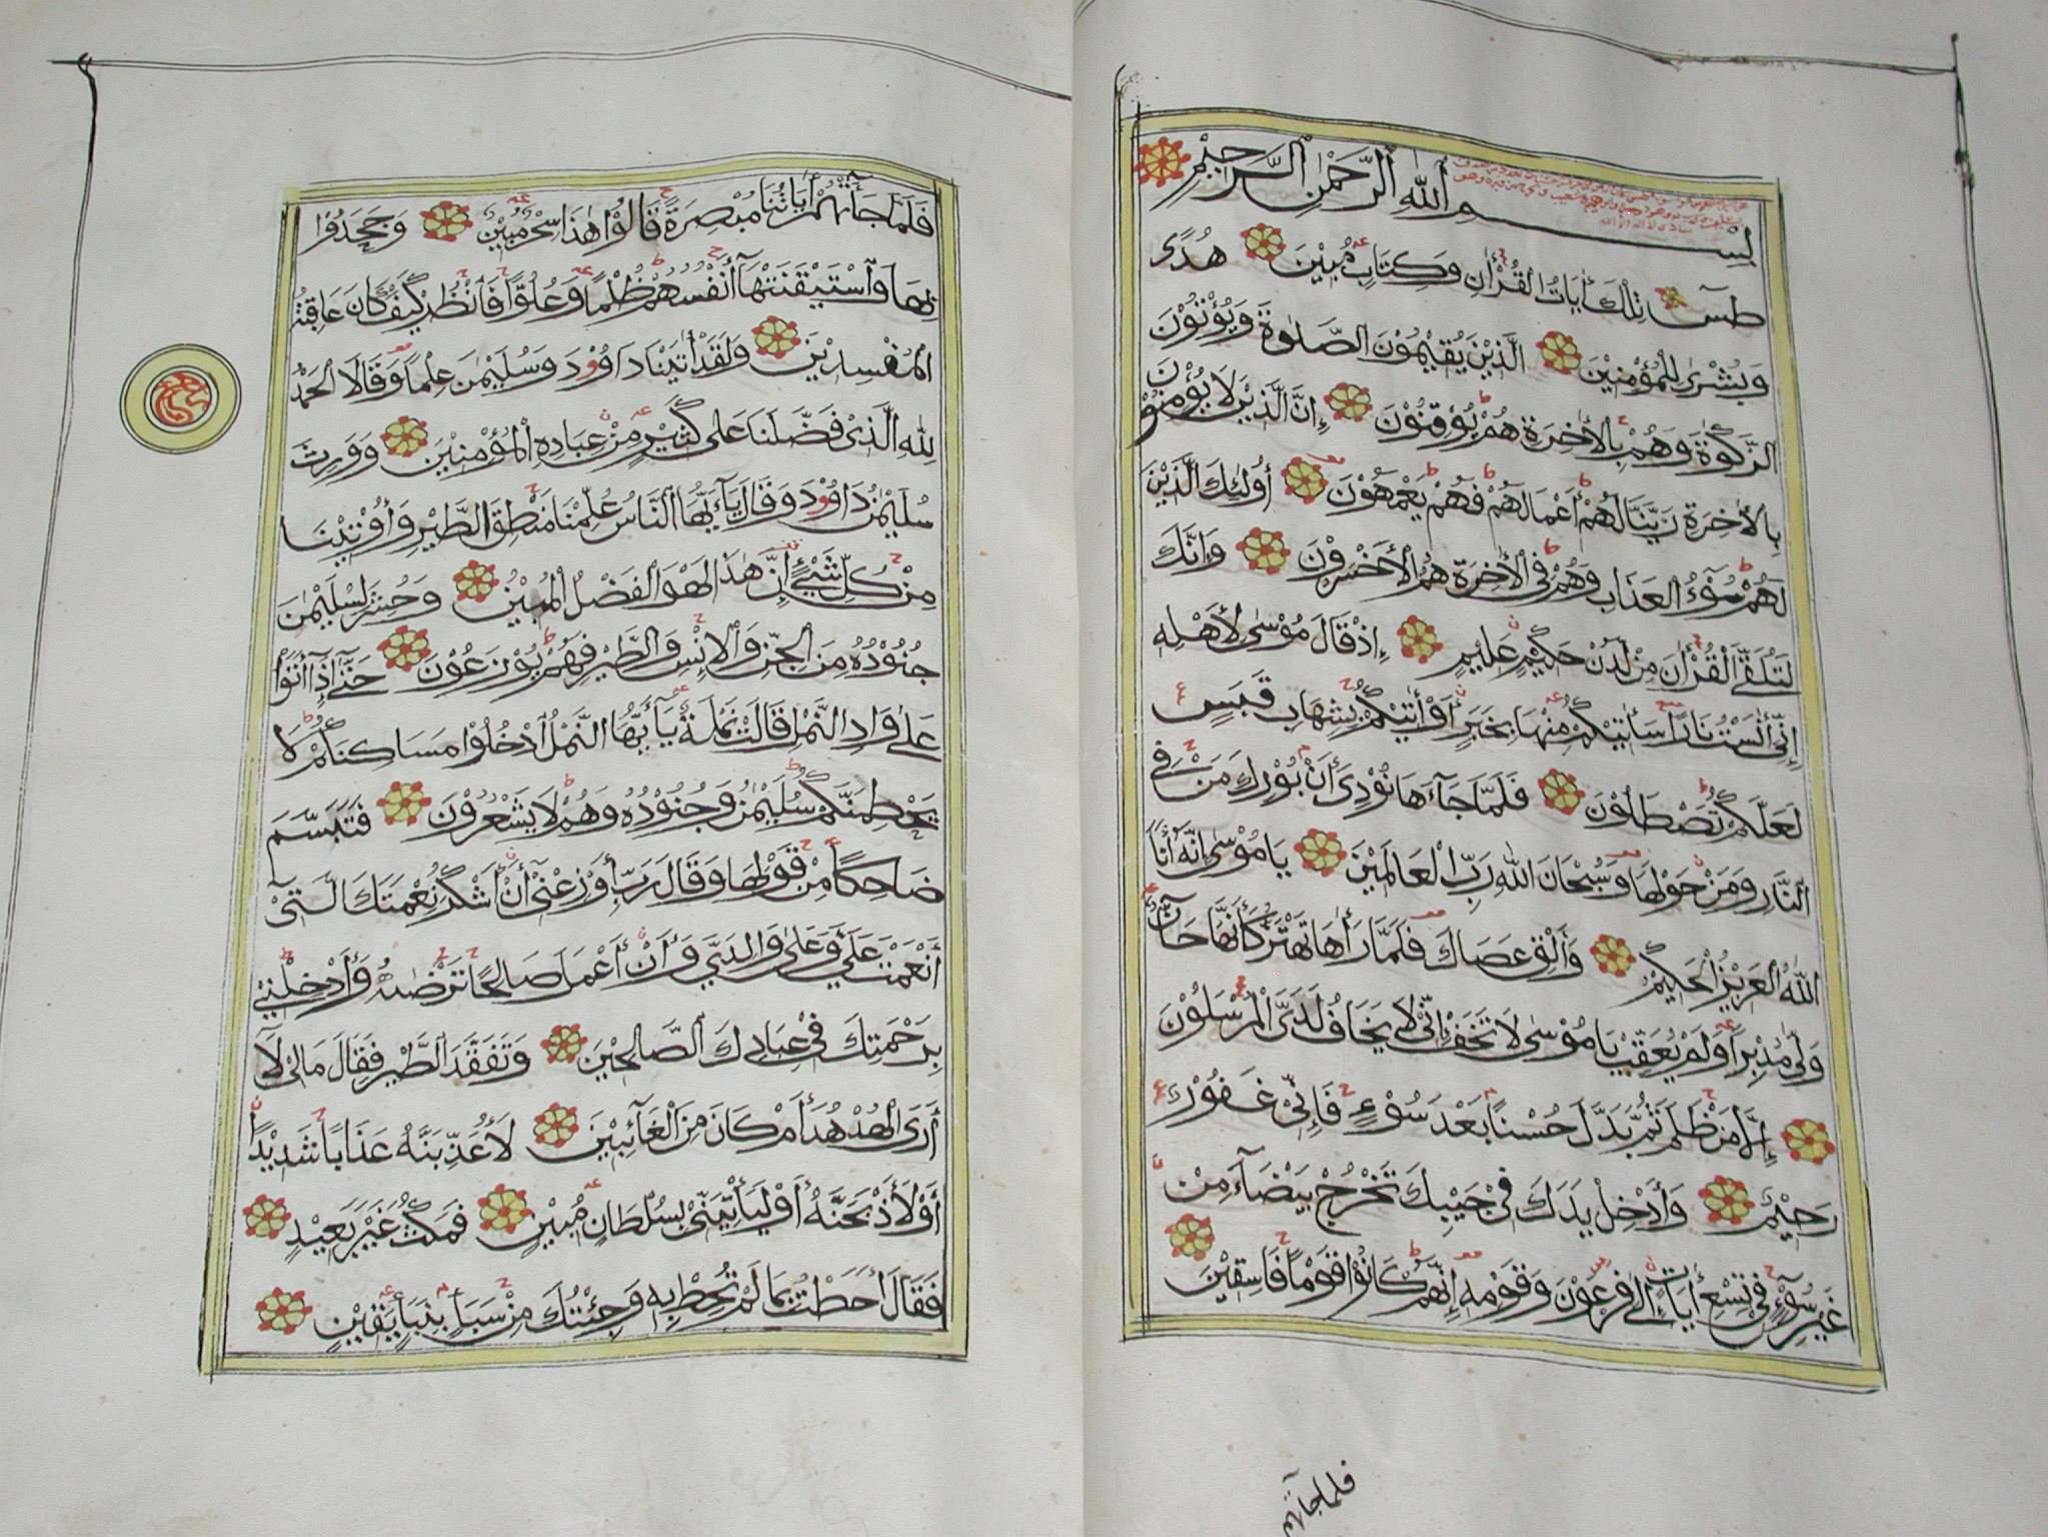 بِسْمِ اللّٰهِ الرَّحْمٰنِ الرَّحِيْمِ
طسٓ تِلْكَ أٰيَاتُ الْقُرْأٰنِ وَكِتَابٍ مُبِيْنٍ هُدًى
وَبُشْرٰى لِلْمُؤْمِنِيْنَ الَّذِيْنَ يُقِيْمُوْنَ الصَّلٰوةَ وَيُؤْتُوْنَ
الزَّكٰوةَ وَهُمْ بِالْأٰخِرَةِ هُمْ يُوْقِنُوْنَ إِنَّ الَّذِيْنَ لَا يُؤْمِنُوْنَ
بِالْأٰخِرَةِ زَيَّنَّا لَهُمْ أَعْمَالَهُمْ فَهُمْ يَعْمَهُوْنَ أُولٰئِكَ الَّذِيْنَ
لَهُمْ سُوْٓءُ الْعَذَابِ وَهُمْ فِي الْأٰخِرَةِ هُمُ الْأَخْسَرُوْنَ وَإِنَّكَ
لَتُلَقَّى الْقُرْأٰنَ مِنْ لَدُنْ حَكِيْمٍ عَلِيْمٍ إِذْ قَالَ مُوْسٰى لِأَهْلِهِ
إِنِّي أٰنَسْتُ نَارًا سَأٰتِيْكُمْ مِنْهَا بِخَبَرٍ أَوْ أٰتِيْكُمْ بِشِهَابٍ قَبَسٍ
لَعَلَّكُمْ تَصْطَلُوْنَ فَلَمَّا جَآءَهَا نُوْدِيَ أَنْ بُوْرِكَ مَنْ فِي
النَّارِ وَمَنْ حَوْلَهَا وَسُبْحَانَ اللّٰهِ رَبِّ الْعَالَمِيْنَ يَا مُوْسٰى إِنَّهُ أَنَا
اللّٰهُ الْعَزِيْزُ الْحَكِيْمُ وَأَلْقِ عَصَاكَ فَلَمَّا رَأٰهَا تَهْتَزُّ كَأَنَّهَا جَآنٌّ
وَلّٰى مُدْبِرًا وَلَمْ يُعَقِّبْ يَا مُوْسٰى لَا تَخَفْ إِنِّيْ لَا يَخَافُ لَدَيَّ الْمُرْسَلُوْنَ
إِلَّا مَنْ ظَلَمَ ثُمَّ بَدَّلَ حُسْنًا بَعْدَ سُوْٓءٍ فَإِنِّيْ غَفُوْرٌ
رَحِيْمٌ وَأَدْخِلْ يَدَكَ فِيْ جَيْبِكَ تَخْرُجْ بَيْضَآءَ مِنْ
غَيْرِ سُوْٓءٍ فِيْ تِسْعِ أٰيَاتٍ إِلٰى فِرْعَوْنَ وَقَوْمِهِ إِنَّهُمْ كَانُوْا قَوْمًا فَاسِقِيْنَ
فلما جآءتهم
فَلَمَّا جَآءَتْهُمْ أٰيَاتُنَا مُبْصِرَةً قَالُوْا هٰذَا سِحْرٌ مُبِيْنٌ وَجَحَدُوْا
بِهَا وَاسْتَيْقَنَتْهَا أَنْفُسُهُمْ ظُلْمًا وَعُلُوًّا فَانْظُرْ كَيْفَ كَانَ عَاقِبَةُ
الْمُفْسِدِيْنَ وَلَقَدْ أٰتَيْنَا دَاوُوْدَ وَسُلَيْمٰنَ عِلْمًا وَقَالَا الْحَمْدُ
لِلّٰهِ الَّذِيْ فَضَّلَنَا عَلٰى كَثِيْرٍ مِنْ عِبَادِهِ الْمُؤْمِنِيْنَ وَوَرِثَ
سُلَيْمٰنُ دَاوُوْدَ وَقَالَ يَآأَيُّهَا النَّاسُ عُلِّمْنَا مَنْطِقَ الطَّيْرِ وَأُوْتِيْنَا
مِنْ كُلِّ شَيْءٍ إِنَّ هٰذَا لَهُوَ الْفَضْلُ الْمُبِيْنُ وَحُشِرَ لِسُلَيْمٰنَ
جُنُوْدُهُ مِنَ الْجِنِّ وَالْإِنْسِ وَالطَّيْرِ فَهُمْ يُوْزَعُوْنَ حَتّٰٓى إِذَآ أَتَوْا
عَلٰى وَادِ النَّمْلِ قَالَتْ نَمْلَةٌ يَآأَيُّهَا النَّمْلُ ادْخُلُوْا مَسَاكِنَكُمْ لَا
يَحْطِمَنَّكُمْ سُلَيْمٰنُ وَجُنُوْدُهُ وَهُمْ لَا يَشْعُرُوْنَ فَتَبَسَّمَ
ضَاحِكًا مِنْ قَوْلِهَا وَقَالَ رَبِّ أَوْزِعْنِيْٓ أَنْ أَشْكُرَ نِعْمَتَكَ الَّتِيْٓ
أَنْعَمْتَ عَلَيَّ وَعَلٰى وَالِدَيَّ وَأَنْ أَعْمَلَ صَالِحًا تَرْضٰىهُ وَأَدْخِلْنِيْ
بِرَحْمَتِكَ فِيْ عِبَادِكَ الصَّالِحِيْنَ وَتَفَقَّدَ الطَّيْرَ فَقَالَ مَالِيْ لَآ
أَرَى الْهُدْهُدَ أَمْ كَانَ مِنَ الْغَآئِبِيْنَ لَأُعَذِّبَنَّهُ عَذَابًا شَدِيْدًا
أَوْ لَأَذْبَحَنَّهُ أَوْ لَيَأْتِيَنِّيْ بِسُلْطَانٍ مُبِيْنٍ فَمَكَثَ غَيْرَ بَعِيْدٍ
فَقَالَ أَحَطْتُ بِمَا لَمْ تُحِطْ بِهِ وَجِئْتُكَ مِنْ سَبَإٍ بِنَبَإٍ يَقِيْنٍ